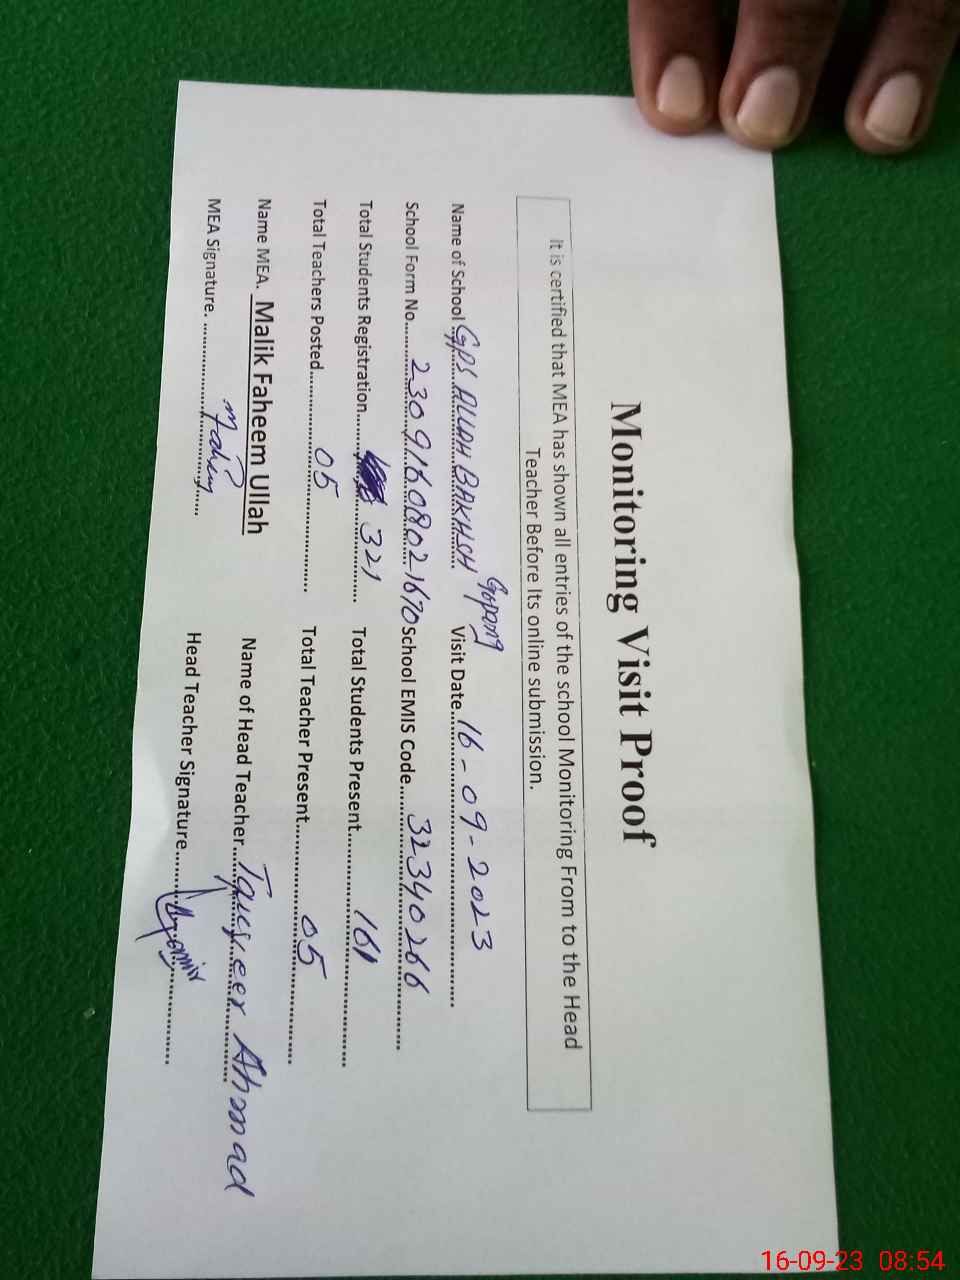 Monitoring Visit Proof
It is certified that MEA has shown all entries of the school Monitoring From to the Head
Teacher Before Its online submission.
Name of School GPS ALLAH BAKHSH Gopang Visit Date 16-09-2023
School Form No. 23091608021670 School EMIS Code 32340266
Total Students Registration 321 Total Students Present 161
Total Teachers Posted 05 Total Teacher Present 05
Name MEA. Malik Faheem Ullah Name of Head Teacher Tauqeer Ahmad
MEA Signature. Faheem Head Teacher Signature
16-09-23 08:54